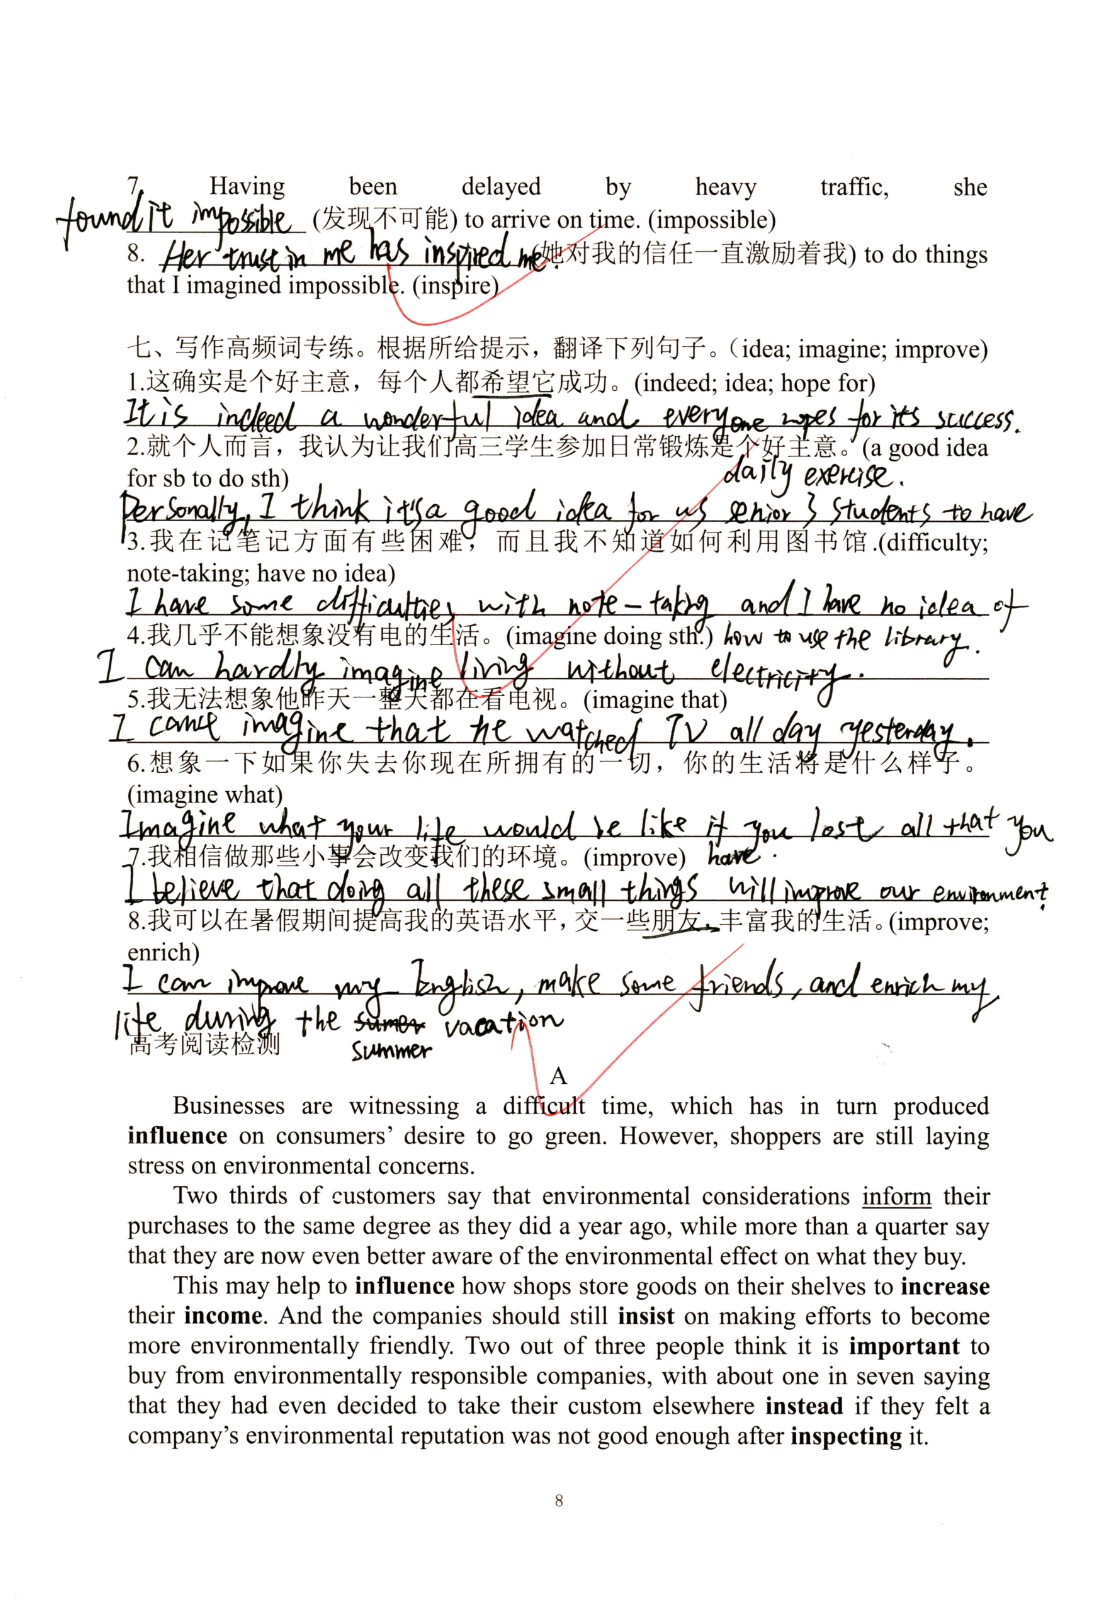 7. Having been delayed by heavy traffic, she
found it impossible (发现不可能) to arrive on time. (impossible)
8. Her trust in me has inspired me. (她对我的信任一直激励着我) to do things
that I imagined impossible. (inspire)
七、写作高频词专练。根据所给提示，翻译下列句子。（idea; imagine; improve)
1.这确实是个好主意，每个人都希望它成功。(indeed; idea; hope for)
It is indeed a wonderful idea and everyone hopes for its success.
2.就个人而言，我认为让我们高三学生参加日常锻炼是个好主意。(a good idea
for sb to do sth)
daily exercise.
Personally, I think it's a good idea for us senior 3 students to have
3.我在记笔记方面有些困难，而且我不知道如何利用图书馆.(difficulty;
note-taking; have no idea)
I have some difficulties with note-taking and I have no idea of
4.我几乎不能想象没有电的生活。(imagine doing sth.) how to use the library.
I can hardly imagine living without electricity.
5.我无法想象他昨天一整天都在看电视。(imagine that)
I can't imagine that he watched TV all day yesterday.
6.想象一下如果你失去你现在所拥有的一切，你的生活将是什么样子。
(imagine what)
Imagine what your life would be like if you lost all that you
7.我相信做那些小事会改变我们的环境。(improve) have.
I believe that doing all these small things will improve our environment.
8.我可以在暑假期间提高我的英语水平，交一些朋友，丰富我的生活。(improve;
enrich)
I can improve my English, make some friends, and enrich my
life during the sumer vacation
高考阅读检测 summer
A
Businesses are witnessing a difficult time, which has in turn produced
influence on consumers' desire to go green. However, shoppers are still laying
stress on environmental concerns.
Two thirds of customers say that environmental considerations inform their
purchases to the same degree as they did a year ago, while more than a quarter say
that they are now even better aware of the environmental effect on what they buy.
This may help to influence how shops store goods on their shelves to increase
their income. And the companies should still insist on making efforts to become
more environmentally friendly. Two out of three people think it is important to
buy from environmentally responsible companies, with about one in seven saying
that they had even decided to take their custom elsewhere instead if they felt a
company's environmental reputation was not good enough after inspecting it.
8